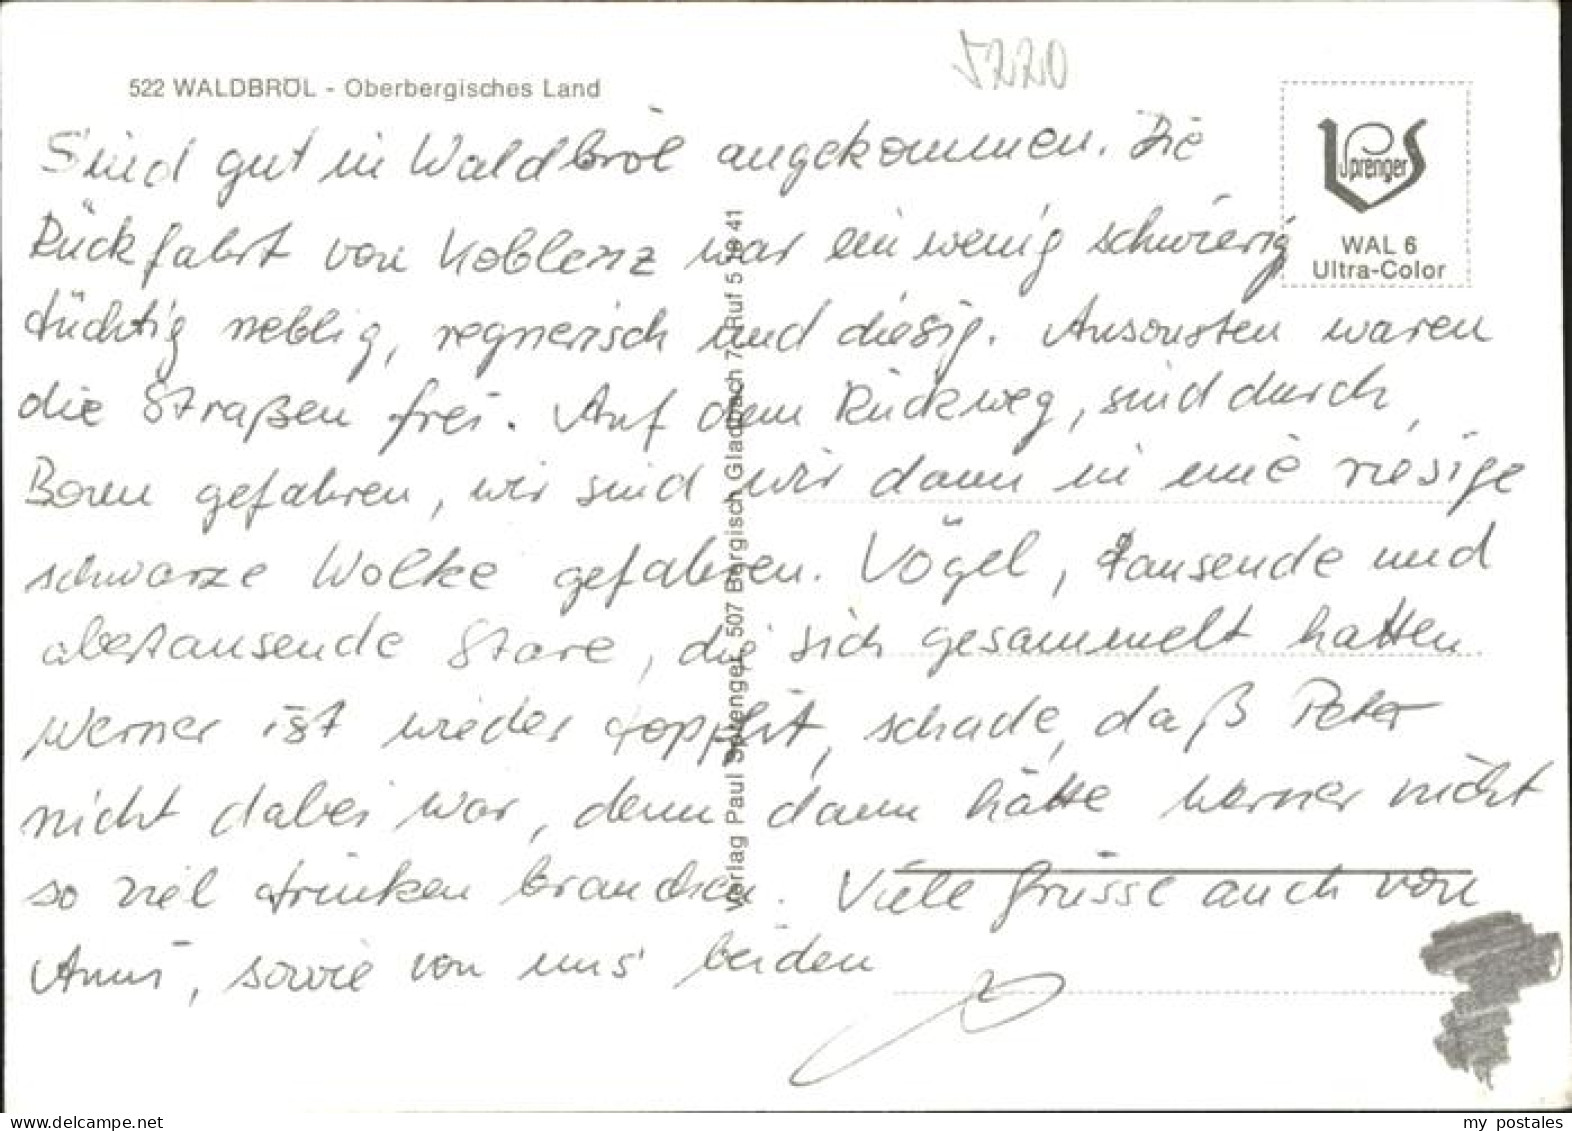 5220
522 WALDBRÖL - Oberbergisches Land
Sind gut in Waldbröl angekommen. Die
Rückfahrt von Koblenz war ein wenig schwierig
tüchtig neblig, regnerisch und diesig. Ansonsten waren
die Straßen frei. Auf dem Rückweg, sind durch
Bonn gefahren, wir sind wir dann in eine riesige
schwarze Wolke gefahren. Vögel, tausende und
abertausende Stare, die sich gesammelt hatten.
Werner ist wieder topfit, schade, daß Peter
nicht dabei war, denn dann hätte Werner nicht
so viel trinken brauchen. Viele Grüsse auch von
Anni, sowie von uns beiden
Sprenger
WAL 6
Ultra-Color
Verlag Paul Sprenger, 507 Bergisch Gladbach 7, Ruf 5 41
my postales